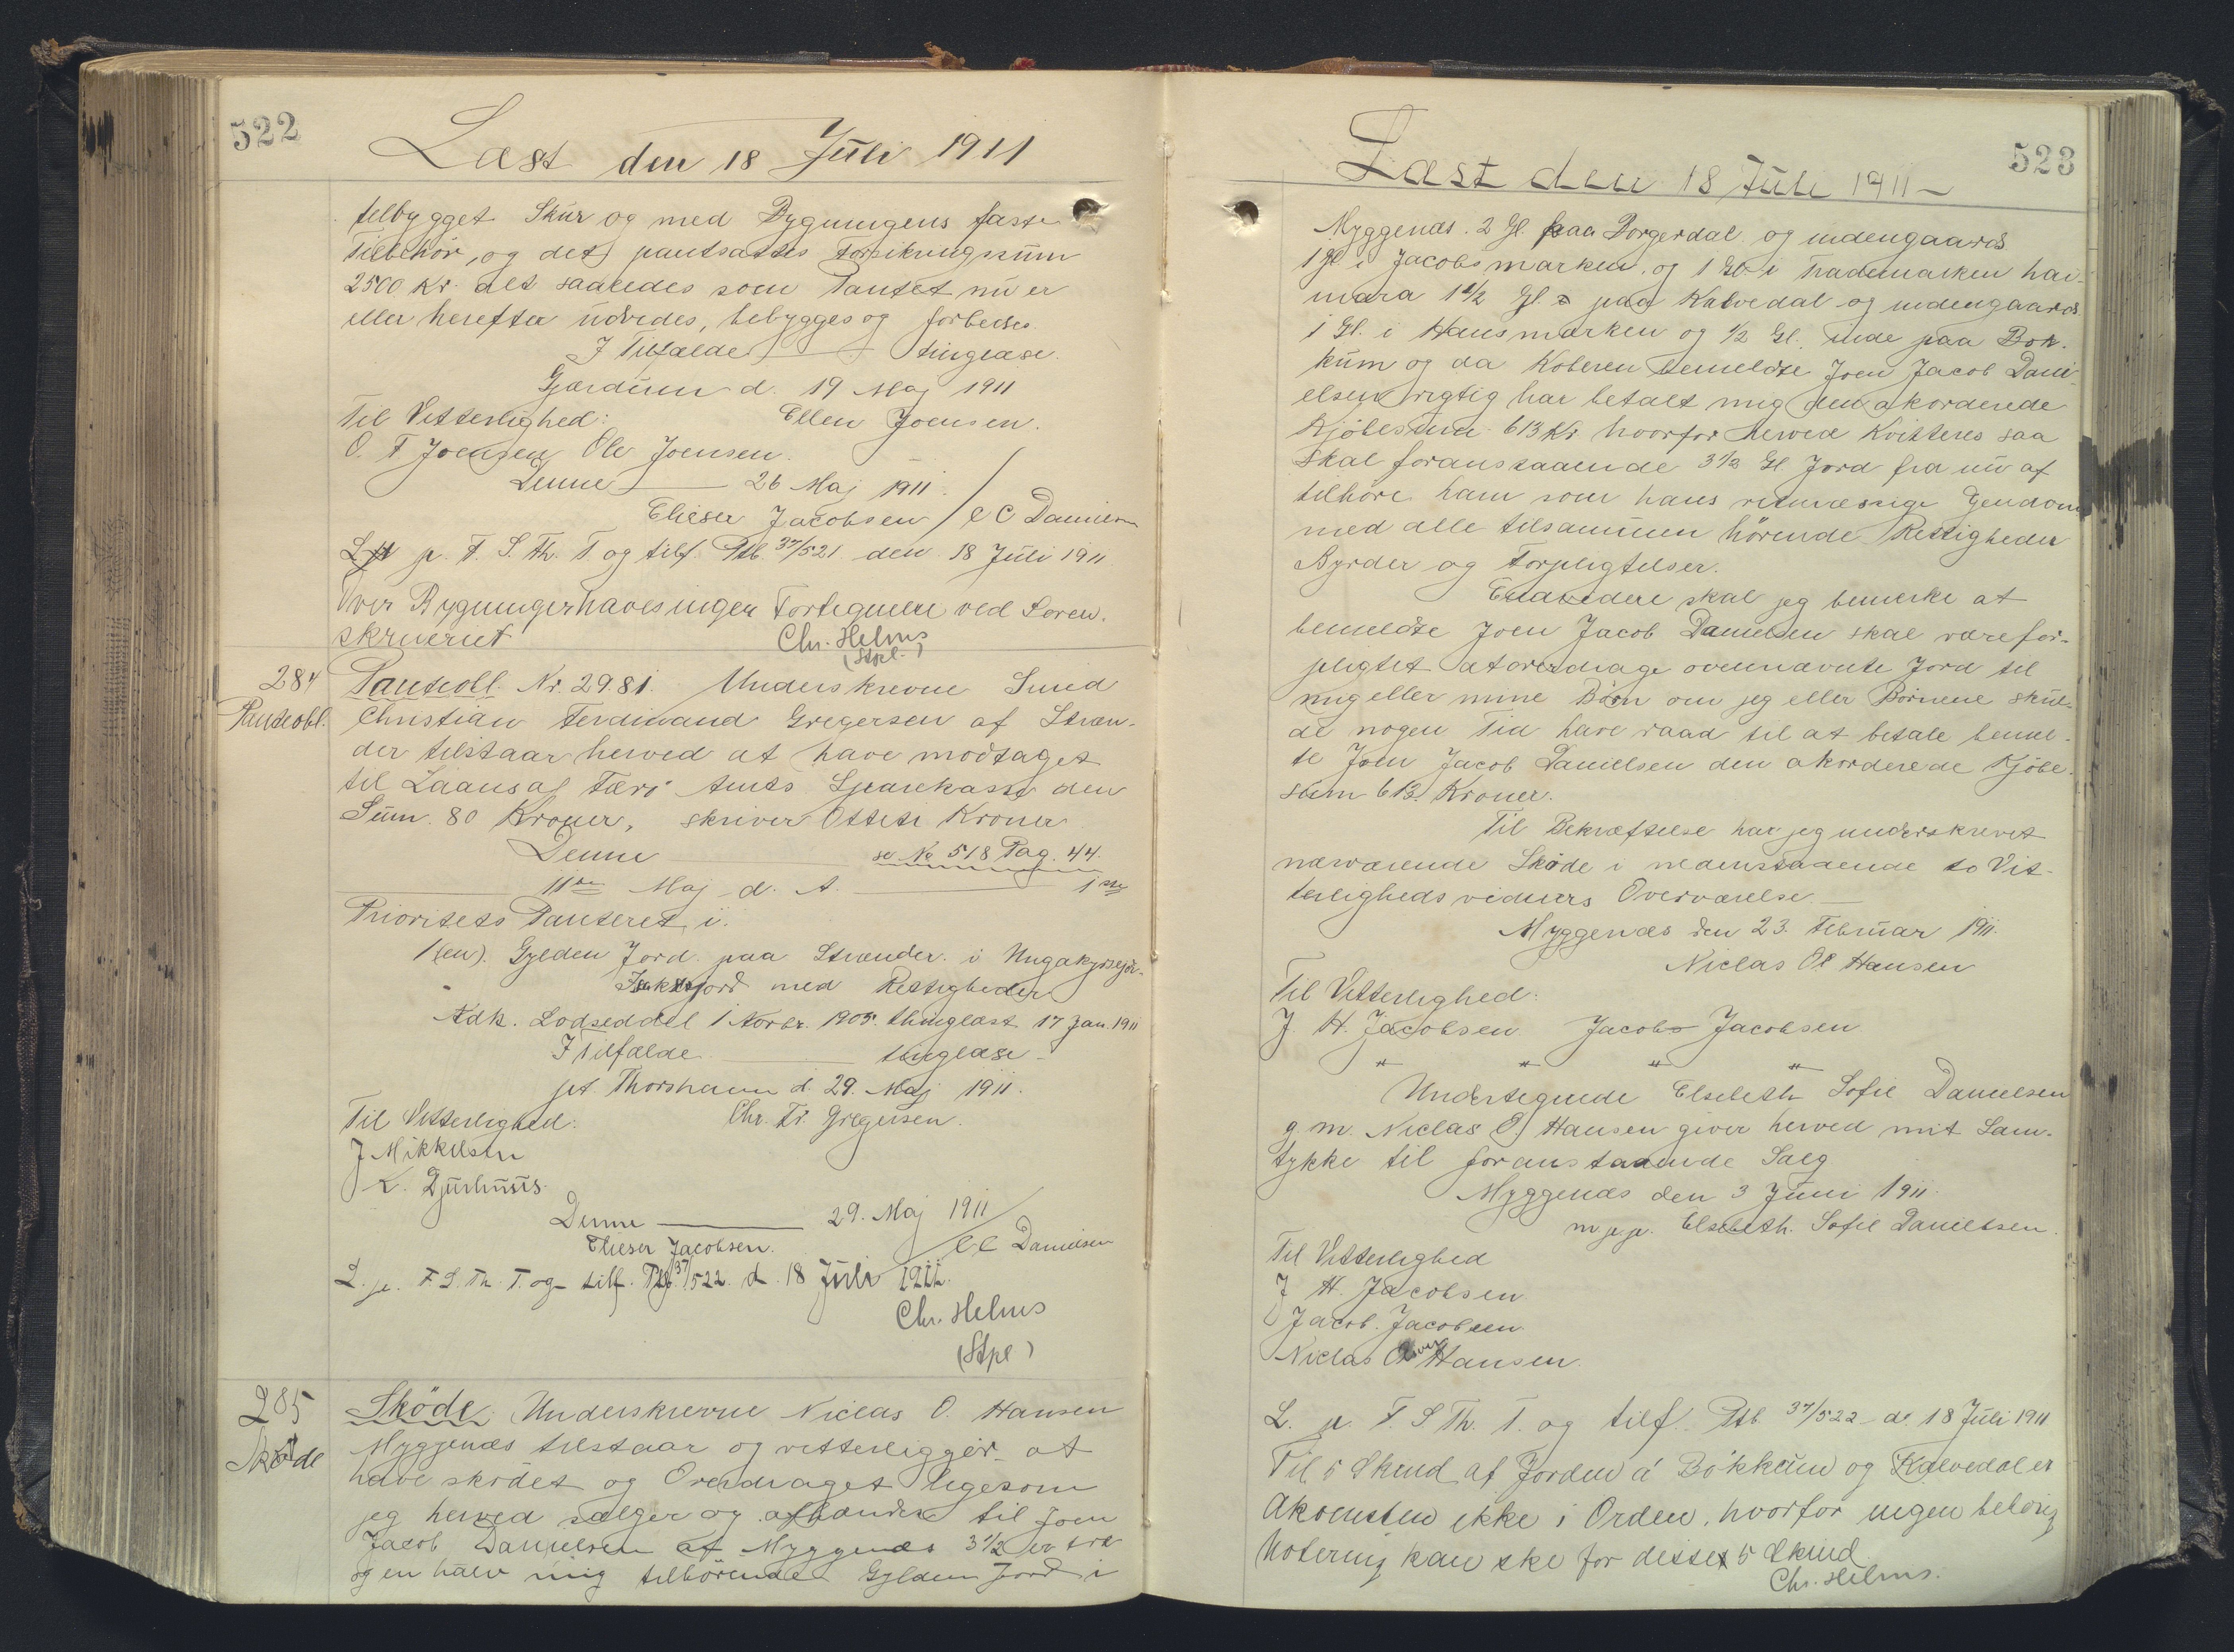 522
Læst den 18 Juli 1911
tilbygget Skur og med Bygningens faste
Tilbehör, og det pantsattes Forsikringssum
2500 Kr. alt saaledes som Pantet nu er
eller herefter udvides, bebygges og forbedres.
I Tilfælde — tinglæse.
Gjærdum d. 19 Maj 1911
Til Vitterlighed: Ellen Joensen.
O. F Joensen Ole Joensen.
Denne — 26 Maj 1911.
Elieser Jacobsen / C C Danielsen
Lyst p. F. S. Th. T og tilf. Ptb. 37/521 den 18 Juli 1911
Over Bygninger haves ingen Fortegnelse ved Soren.
skriveriet
Chr. Helms
(Stpl.)
284
Panteobl.
Panteobl. Nr. 2981. Underskrevne Smed
Christian Ferdinand Gregersen af Stræn-
der tilstaar herved at have modtaget
til Laans af Færø Amts Sparekasse den
Sum 80 Kroner, skriver Otteti Kroner
Denne — se No 518 Pag. 44.
— 11te Maj d. A. — 1ste
Prioritets Panteret i.
1 (en). Gylden Jord paa Strænder i
med Rettigheder
Adk. Lodseddel 1 Novbr. 1905. thinglæst 17 Jan. 1911
I Tilfælde — tinglæse —
pt. Thorshavn d. 29. Maj 1911.
Til Vitterlighed: Chr. Fr. Gregersen.
J Mikkelsen
K. Djurhuus.
Denne — 29. Maj 1911
Elieser Jacobsen. / C C Danielsen
L. p. F. S. Th. T. og tilf. Ptb. 37/522. d. 18 Juli 1911.
Chr. Helms
(Stpl)
285
Sköde
Sköde. Underskrevne Niclas O. Hansen
Myggenæs tilstaar og vitterliggör at
have skødet og Overdraget ligesom
jeg herved sælger og afhænder til Joen
Jacob Danielsen af Myggenæs 3 1/2 er tre
og en halv mig tilhörende Gylden Jord i
523
Læst den 18 Juli 1911 –
Myggenæs. 2 Gl. paa Borgerdal og indengaards
1 Gl. i Jacobsmarken, og 1 Gl. i Trademarken har-
mara 1 1/2 Gl. paa Kalvedal og indengaards
1 Gl. i Hansmarken og 1/2 Gl. inde paa Bok-
kum og da Köberen bemeldte Joen Jacob Dani-
elsen rigtig har betalt mig den akorderede
Kjöbesum 613 Kr hvorfor herved Kvitteres saa
skal foranstaaende 3 1/2 Gl. Jord fra nu af
tilhöre ham som hans retmæssige Ejendom
med alle tilsammen hörende Rettigheder
Byrder og Forpligtelser.
Endvidere skal jeg bemærke at
bemeldte Joen Jacob Danielsen skal være for-
pligtet at overdrage ovennævnte Jord til
mig eller mine Börn om jeg eller Börnene skul-
de nogen Tid have raad til at betale bemel-
te Joen Jacob Danielsen den akorderede Kjöbe-
sum 613. Kroner.
Til Bekræftelse har jeg underskrevet
nærværende Sköde i nedenstaaende to Vit-
terligheds vidners Overværelse —
Myggenæs den 23. Februar 1911.
Niclas Ol Hansen
Til Vitterlighed:
J. H. Jacobsen Jacob Jacobsen
" " " "
Undertegnede Elsebeth Sofie Danielsen
g. m. Niclas O Hansen giver herved mit Sam-
tykke til foranstaaende Salg
Myggenæs den 3 Juni 1911.
m. p. p. Elsebeth Sofie Danielsen.
Til Vitterlighed
J H. Jacobsen.
Jacob. Jacobsen.
Niclas Hansen.
L. p. F. S Th. T. og tilf. Ptb. 37/522 d. 18 Juli 1911
Til 5 Skind af Jorden á Bökkum og Kalvedal er
Akomsten ikke i Orden, hvorfor ingen behörig
Notering kan ske for disse 5 Skind
Chr. Helms.